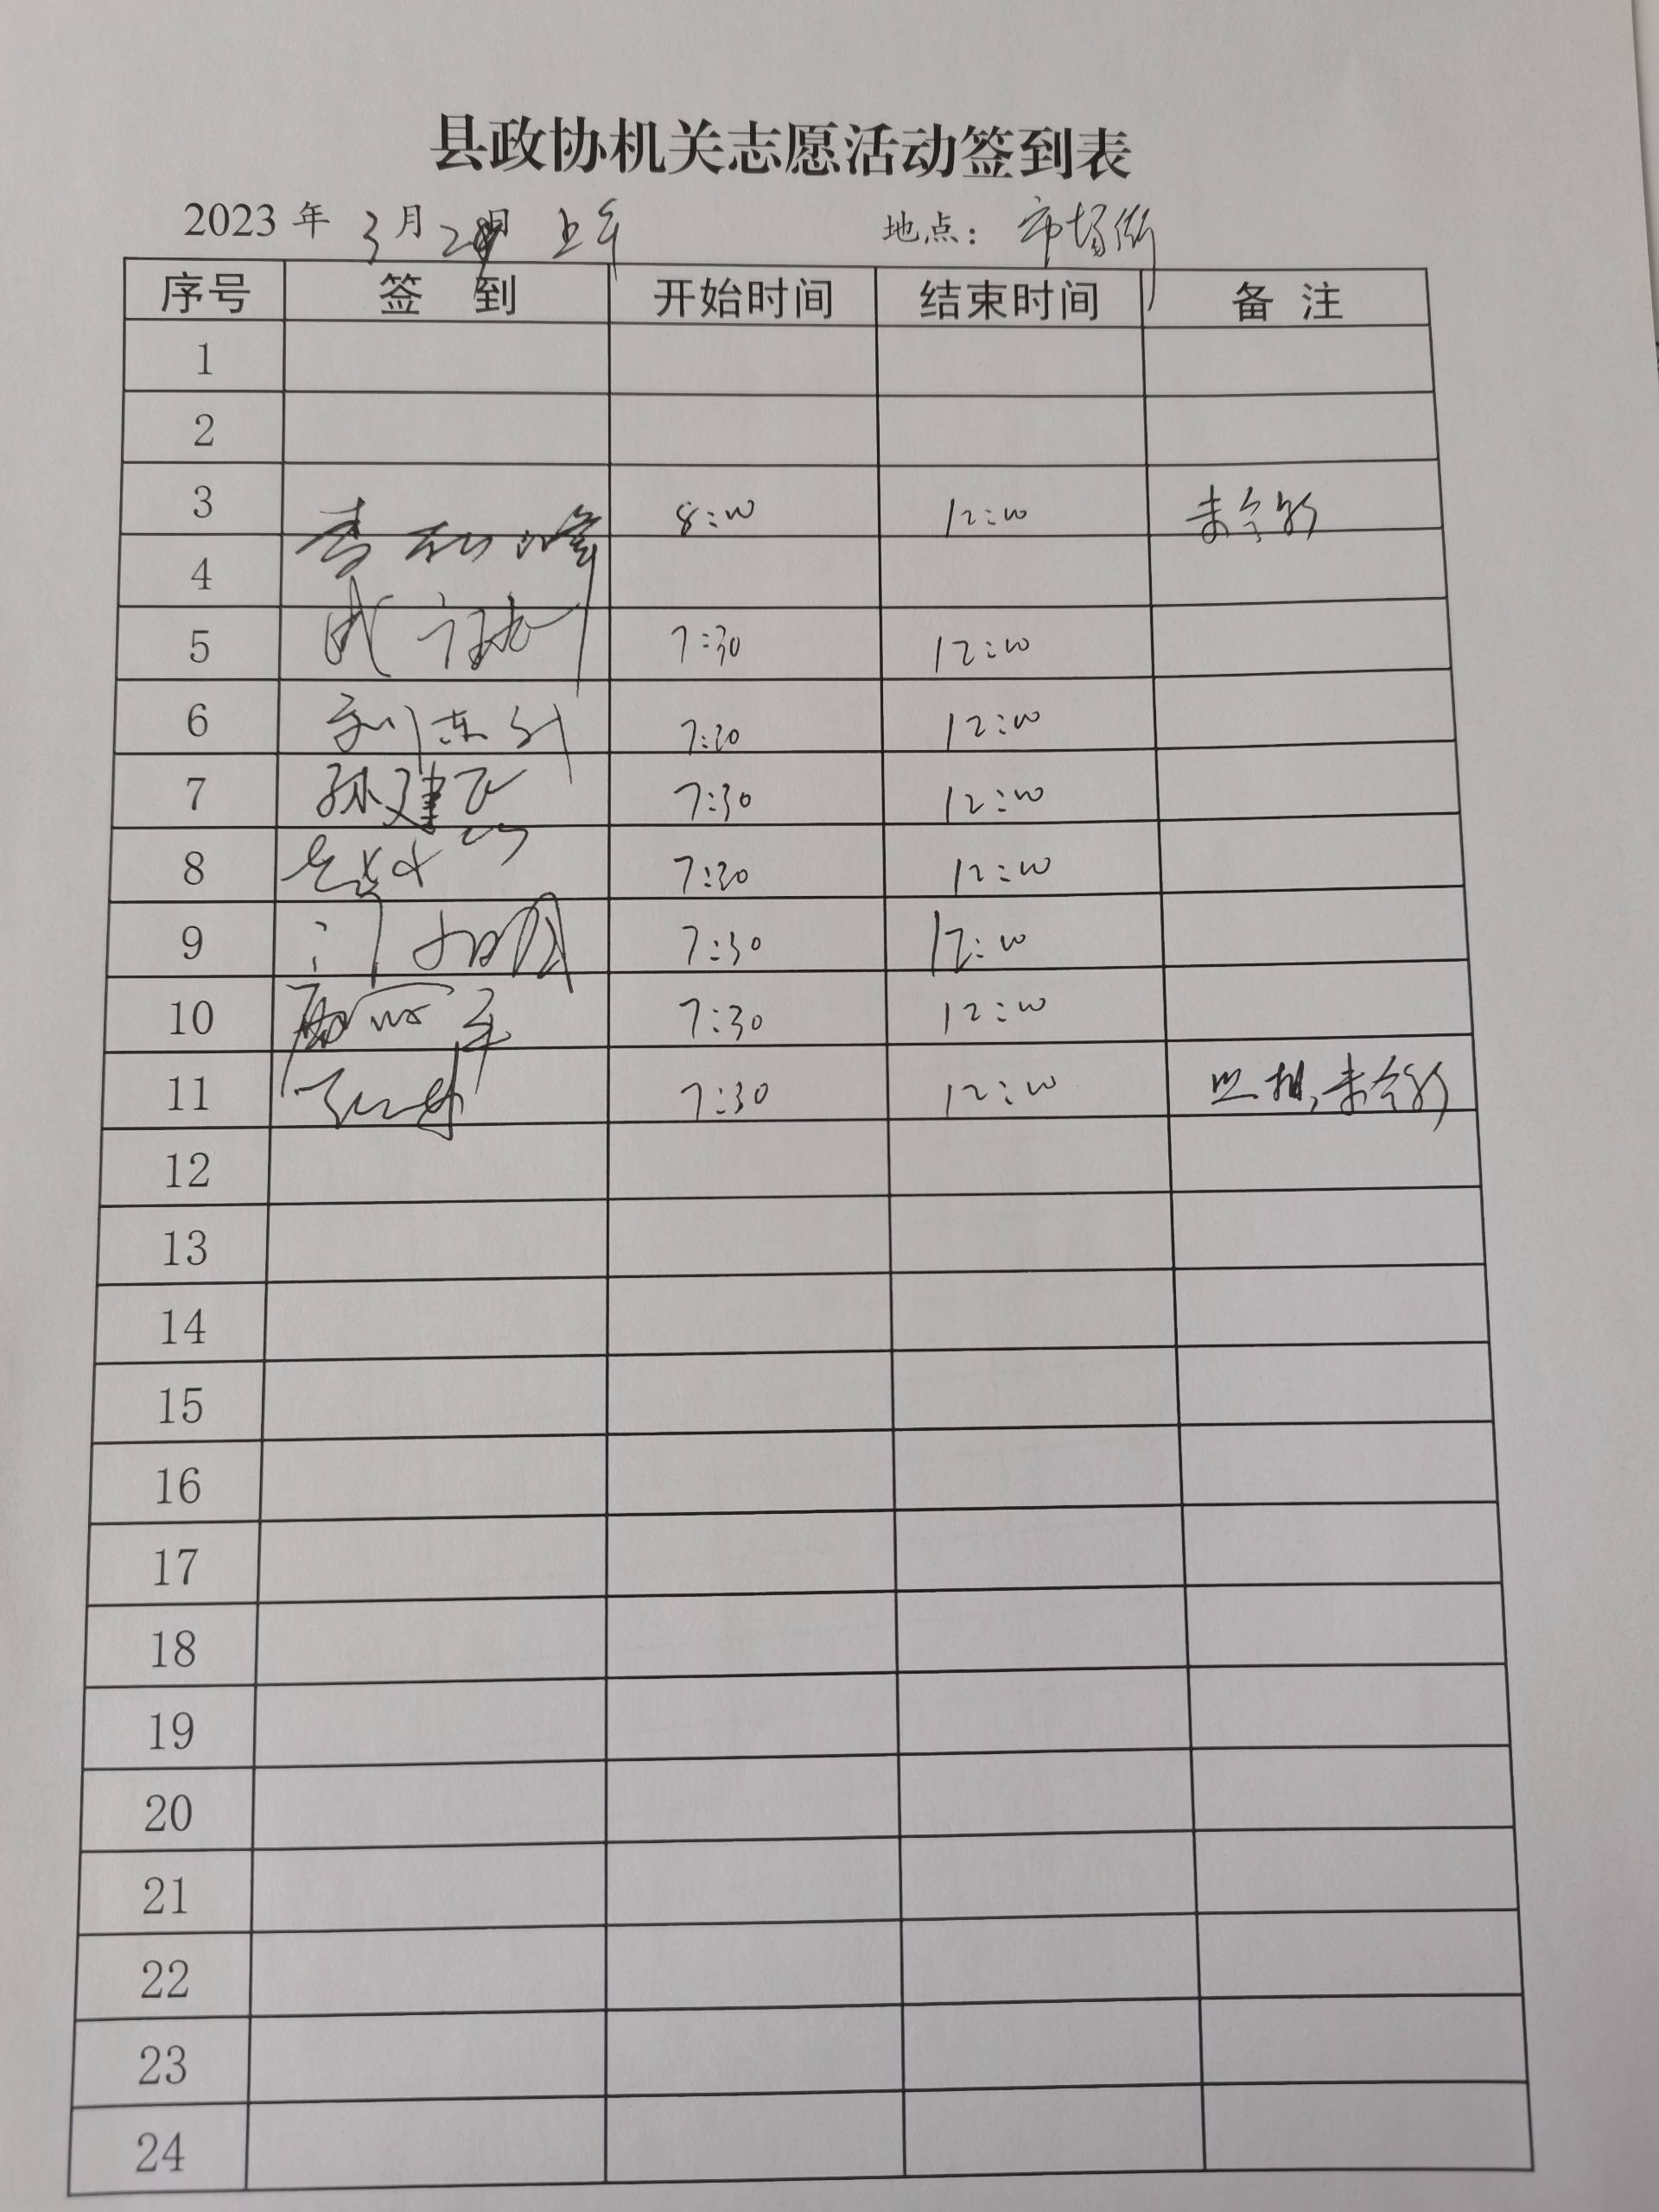 县政协机关志愿活动签到表
2023年 3月2日 上午 地点：市场街
序号 签 到 开始时间 结束时间 备 注
1
2
3 8:00 12:00
4
5 7:30 12:00
6 刘东 7:30 12:00
7 孙建飞 7:30 12:00
8 7:30 12:00
9 7:30 12:00
10 7:30 12:00
11 7:30 12:00 照相,
12
13
14
15
16
17
18
19
20
21
22
23
24